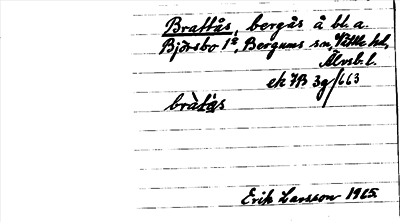 Brattås, bergås å bl. a.
Björsbo 1º, Bergums sn, Vättle hd,
Älvsb. l.
ek 7B 3g/663
bràtås
Erik Larsson 1965.